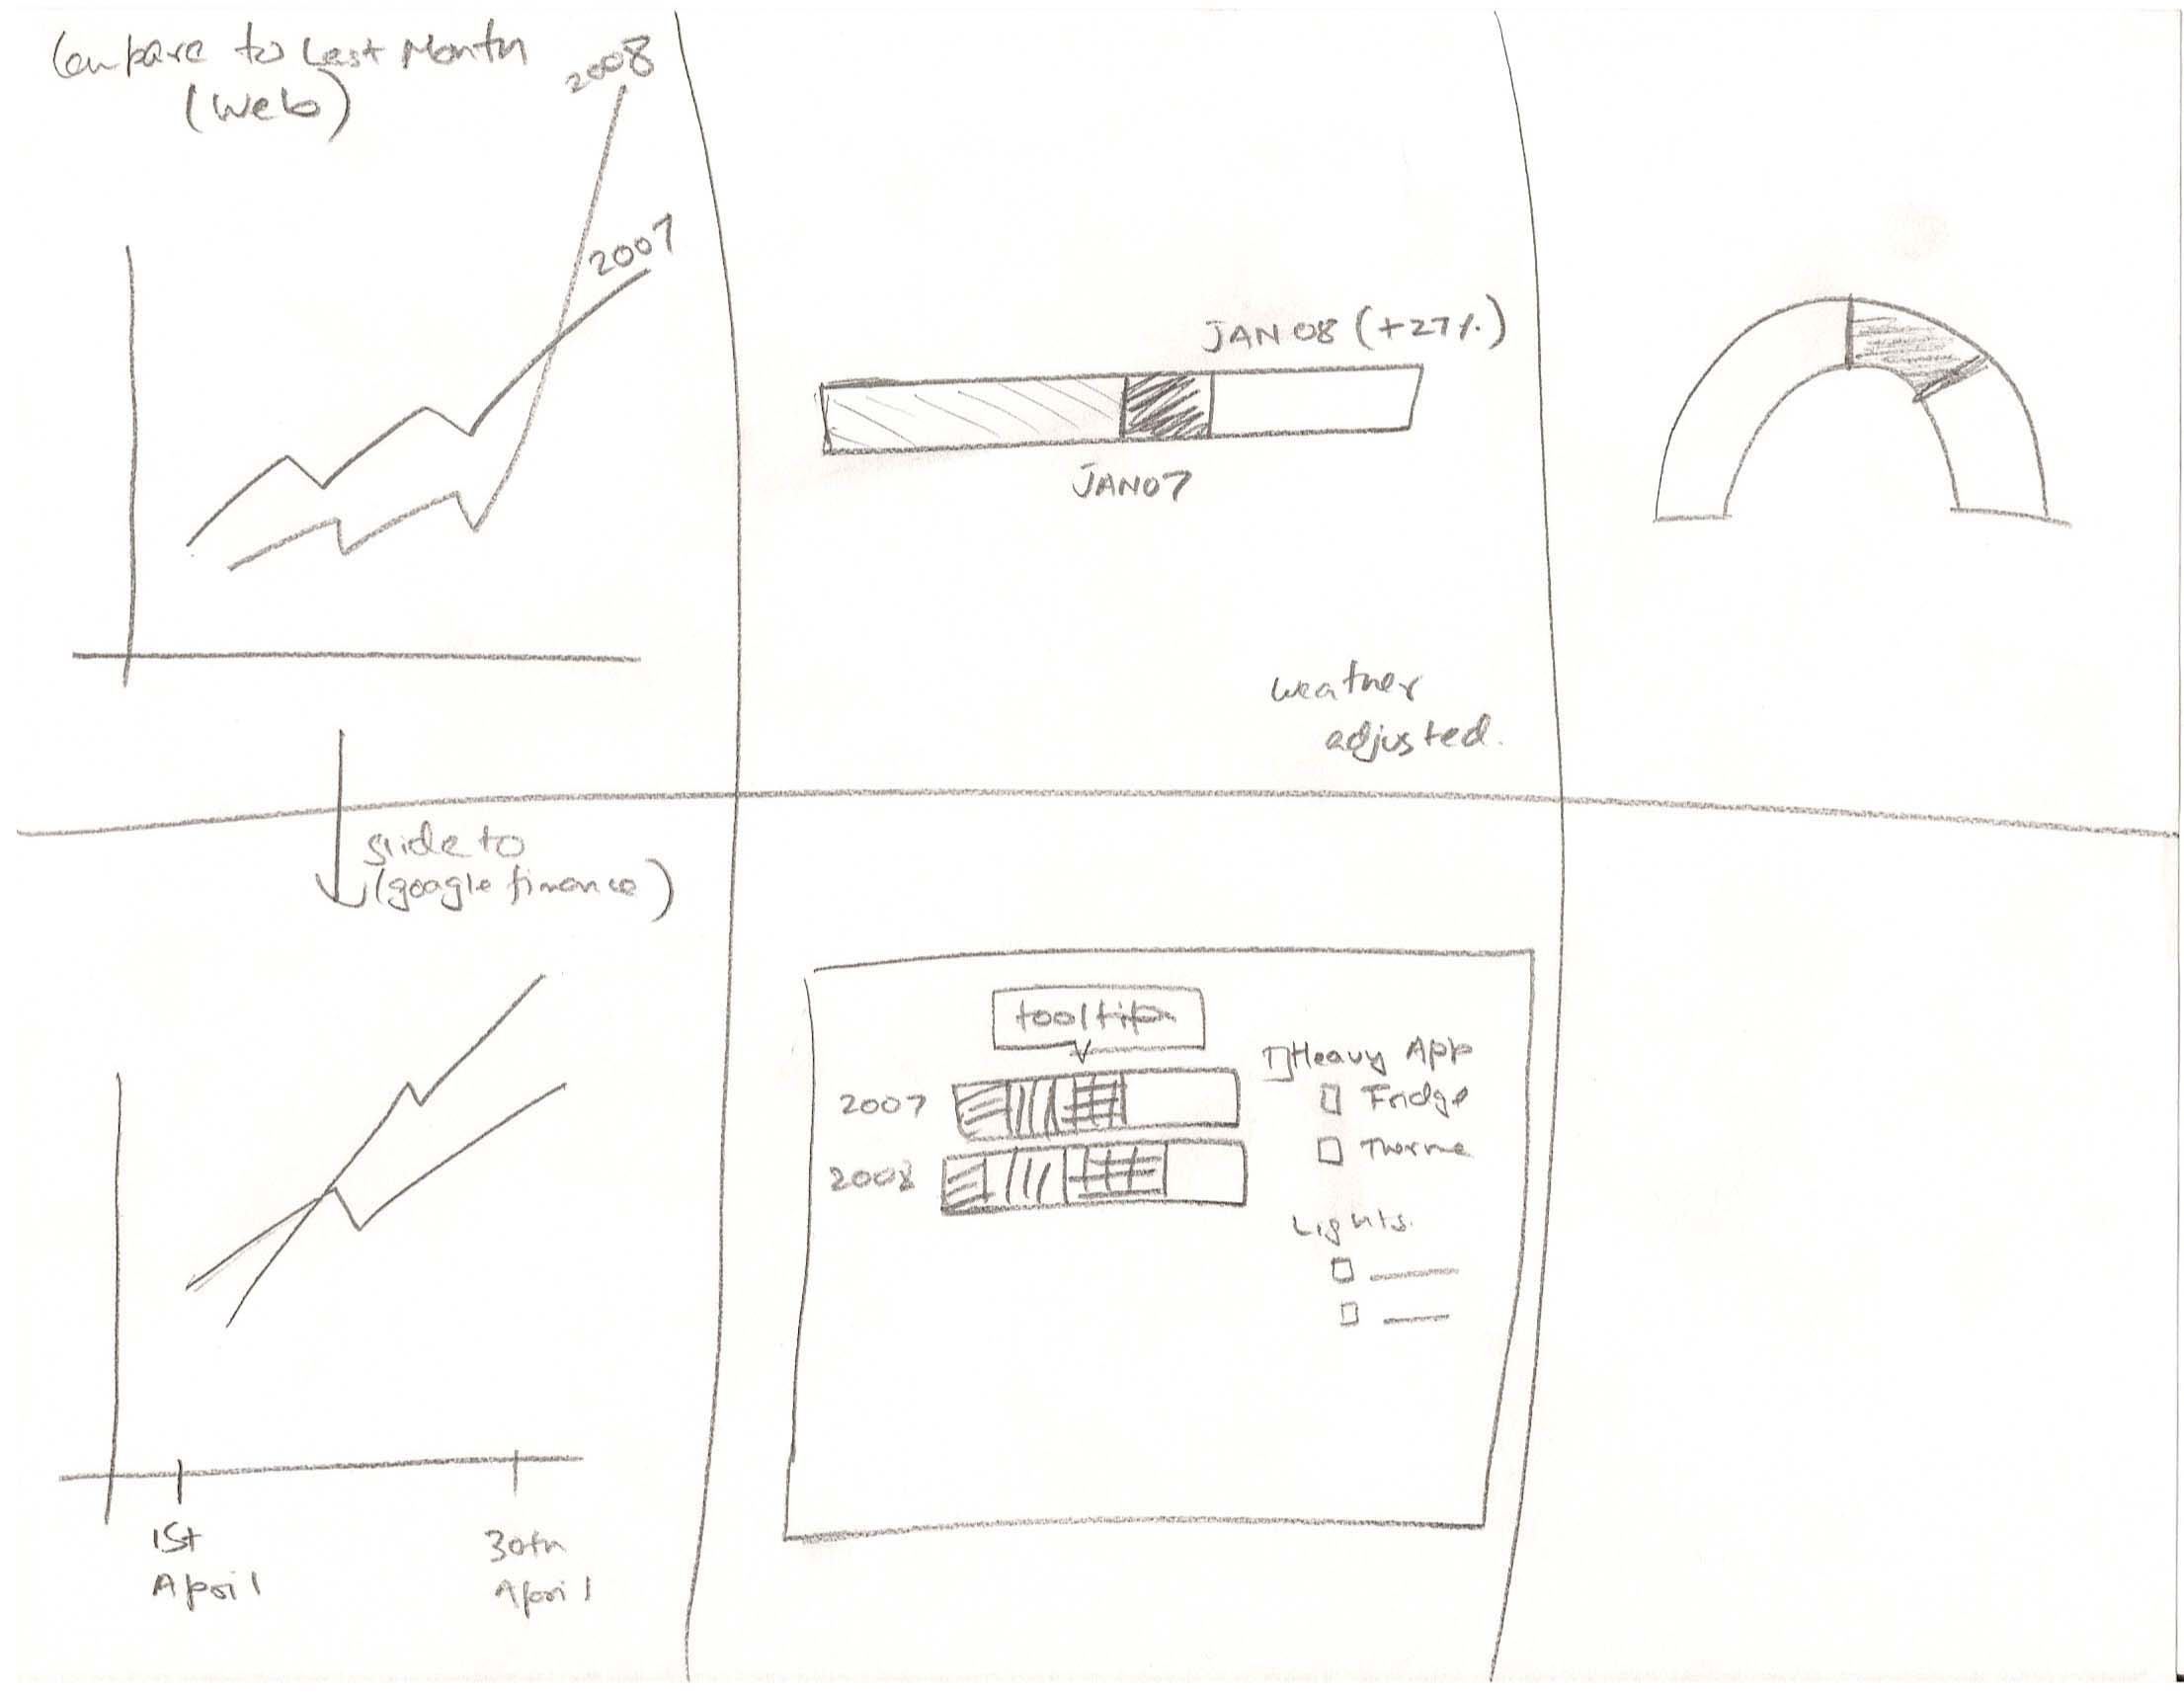 Compare to Last Month
(Web)
2008
2007
JAN 08 (+27%)
JAN07
weather
adjusted.
slide to
(google finance)
1st
April
30th
April
tooltip
2007
2008
Heavy App
Fridge
Lights.